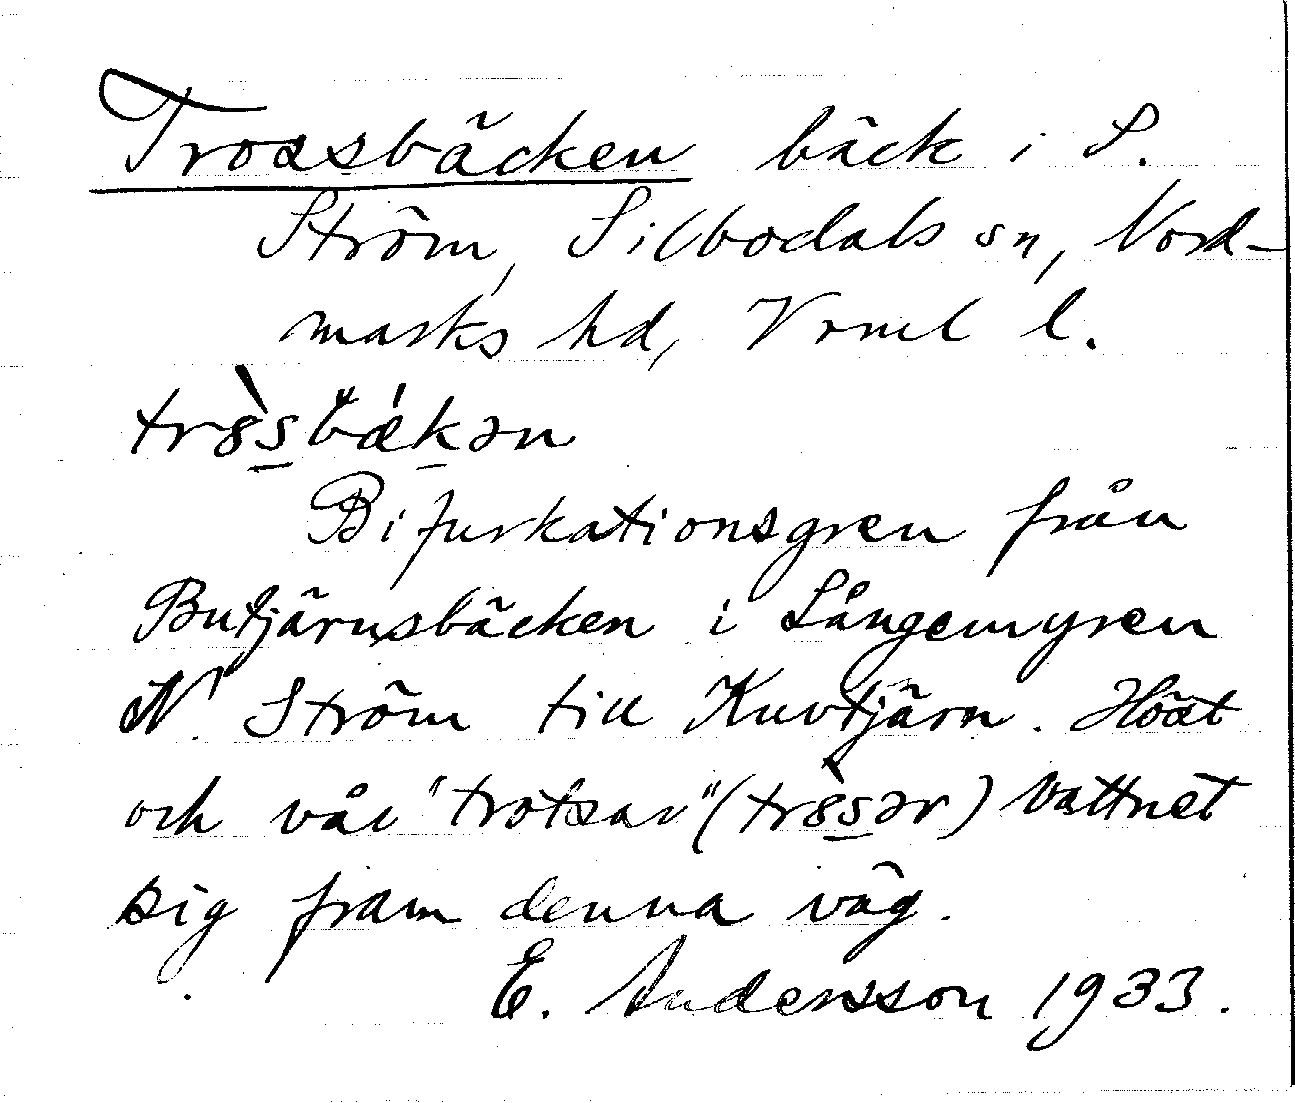 Trossbäcken bäck i S.
Ström, Silbodals sn, Nord-
marks hd, Vrml l.
trɞ̀sbǽkən
Bifurkationsgren från
Butjärnsbäcken i Långemyren
N. Ström till Kuvtjärn. Höst
och vår "trotsar" (trɞ̀sər) vattnet
sig fram denna väg.
E. Andersson 1933.